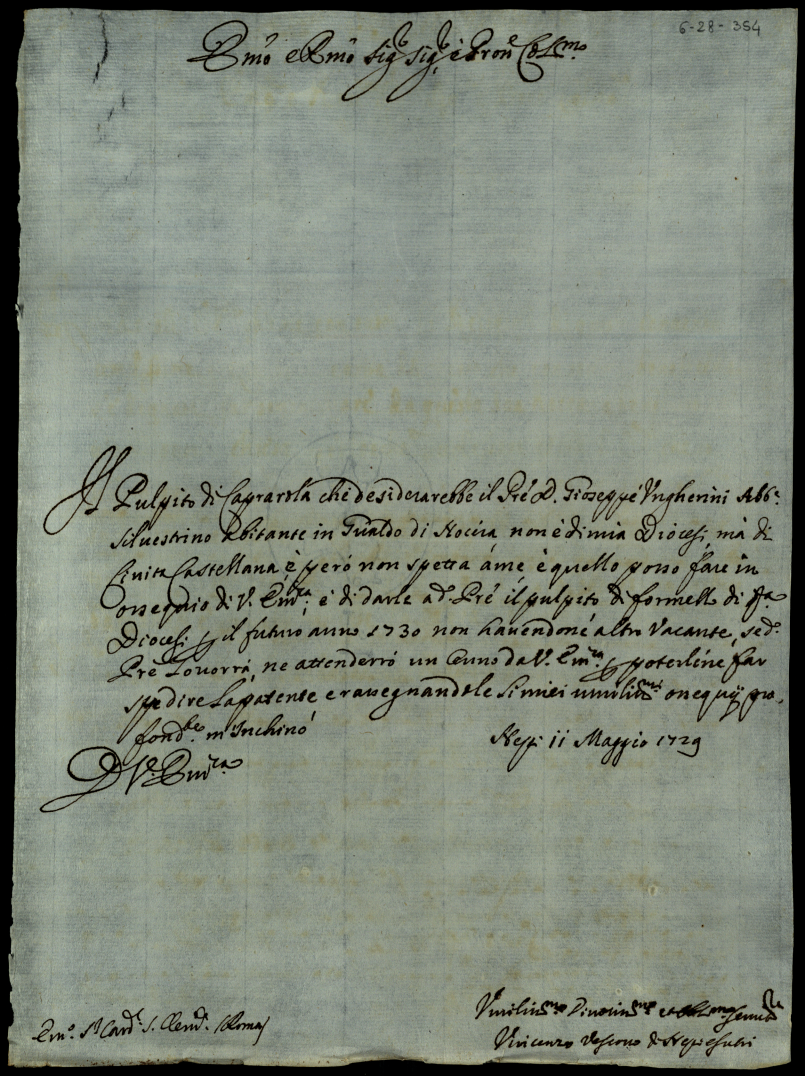 6-28-354
Emo e Rmo Sigr Sigr è Pron Colmo
Il Pulpito di Caprarola che desiderarebbe il Pre D. Gioseppe Ungherini Abbe
Siluestrino abitante in Gualdo di Nocera non è di mia Diocesi, mà di
Civita Castellana, è però non spetta à me, è quello posso fare in
ossequio di V. Emza, è di darle a d. Pre il pulpito di formello di qta
Diocesi p il futuro anno 1730 non havendone altro Vacante, se d.
Pre lo vorrà, ne attenderrò un Cenno da V. Emza p poterline far
spedire la patente e rassegnandole li miei umilissmi ossequij pro-
fondte m'inchino
Nepi 11 Maggio 1729
D V. Emza
Umilissmo Divotissmo et Obblmo Servre
Emo Sr Card. S. Clemte. Roma
Vincenzo Vescovo di Nepi e Sutri